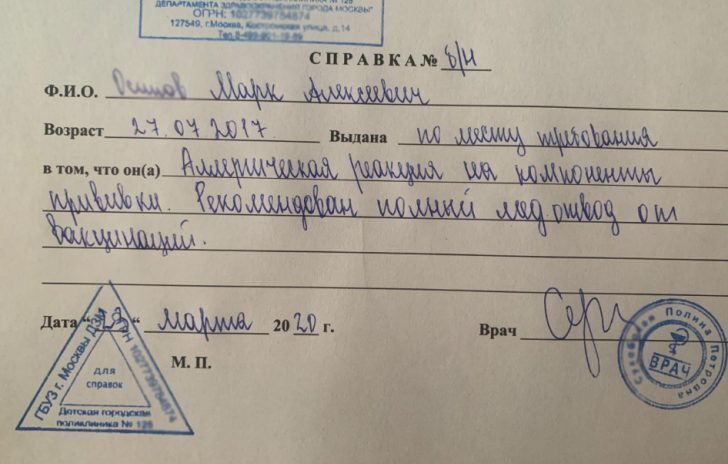 ДЕПАРТАМЕНТА ЗДРАВООХРАНЕНИЯ ГОРОДА МОСКВЫ"
ОГРН: 1027739754874
127549, г.Москва, Костромская улица, д.14
СПРАВКА № б/н
Ф.И.О. Марк Алексеевич
Возраст 27.07.2017 Выдана по месту требования
в том, что он(а) Аллергическая реакция на компоненты
прививки. Рекомендован полный мед.отвод от
вакцинаций.
Дата " " марта 2020 г. Врач
М. П.
ГБУЗ г. Москвы ДЗМ
для
справок
Детская городская
поликлиника №
Полина Петровна
ВРАЧ